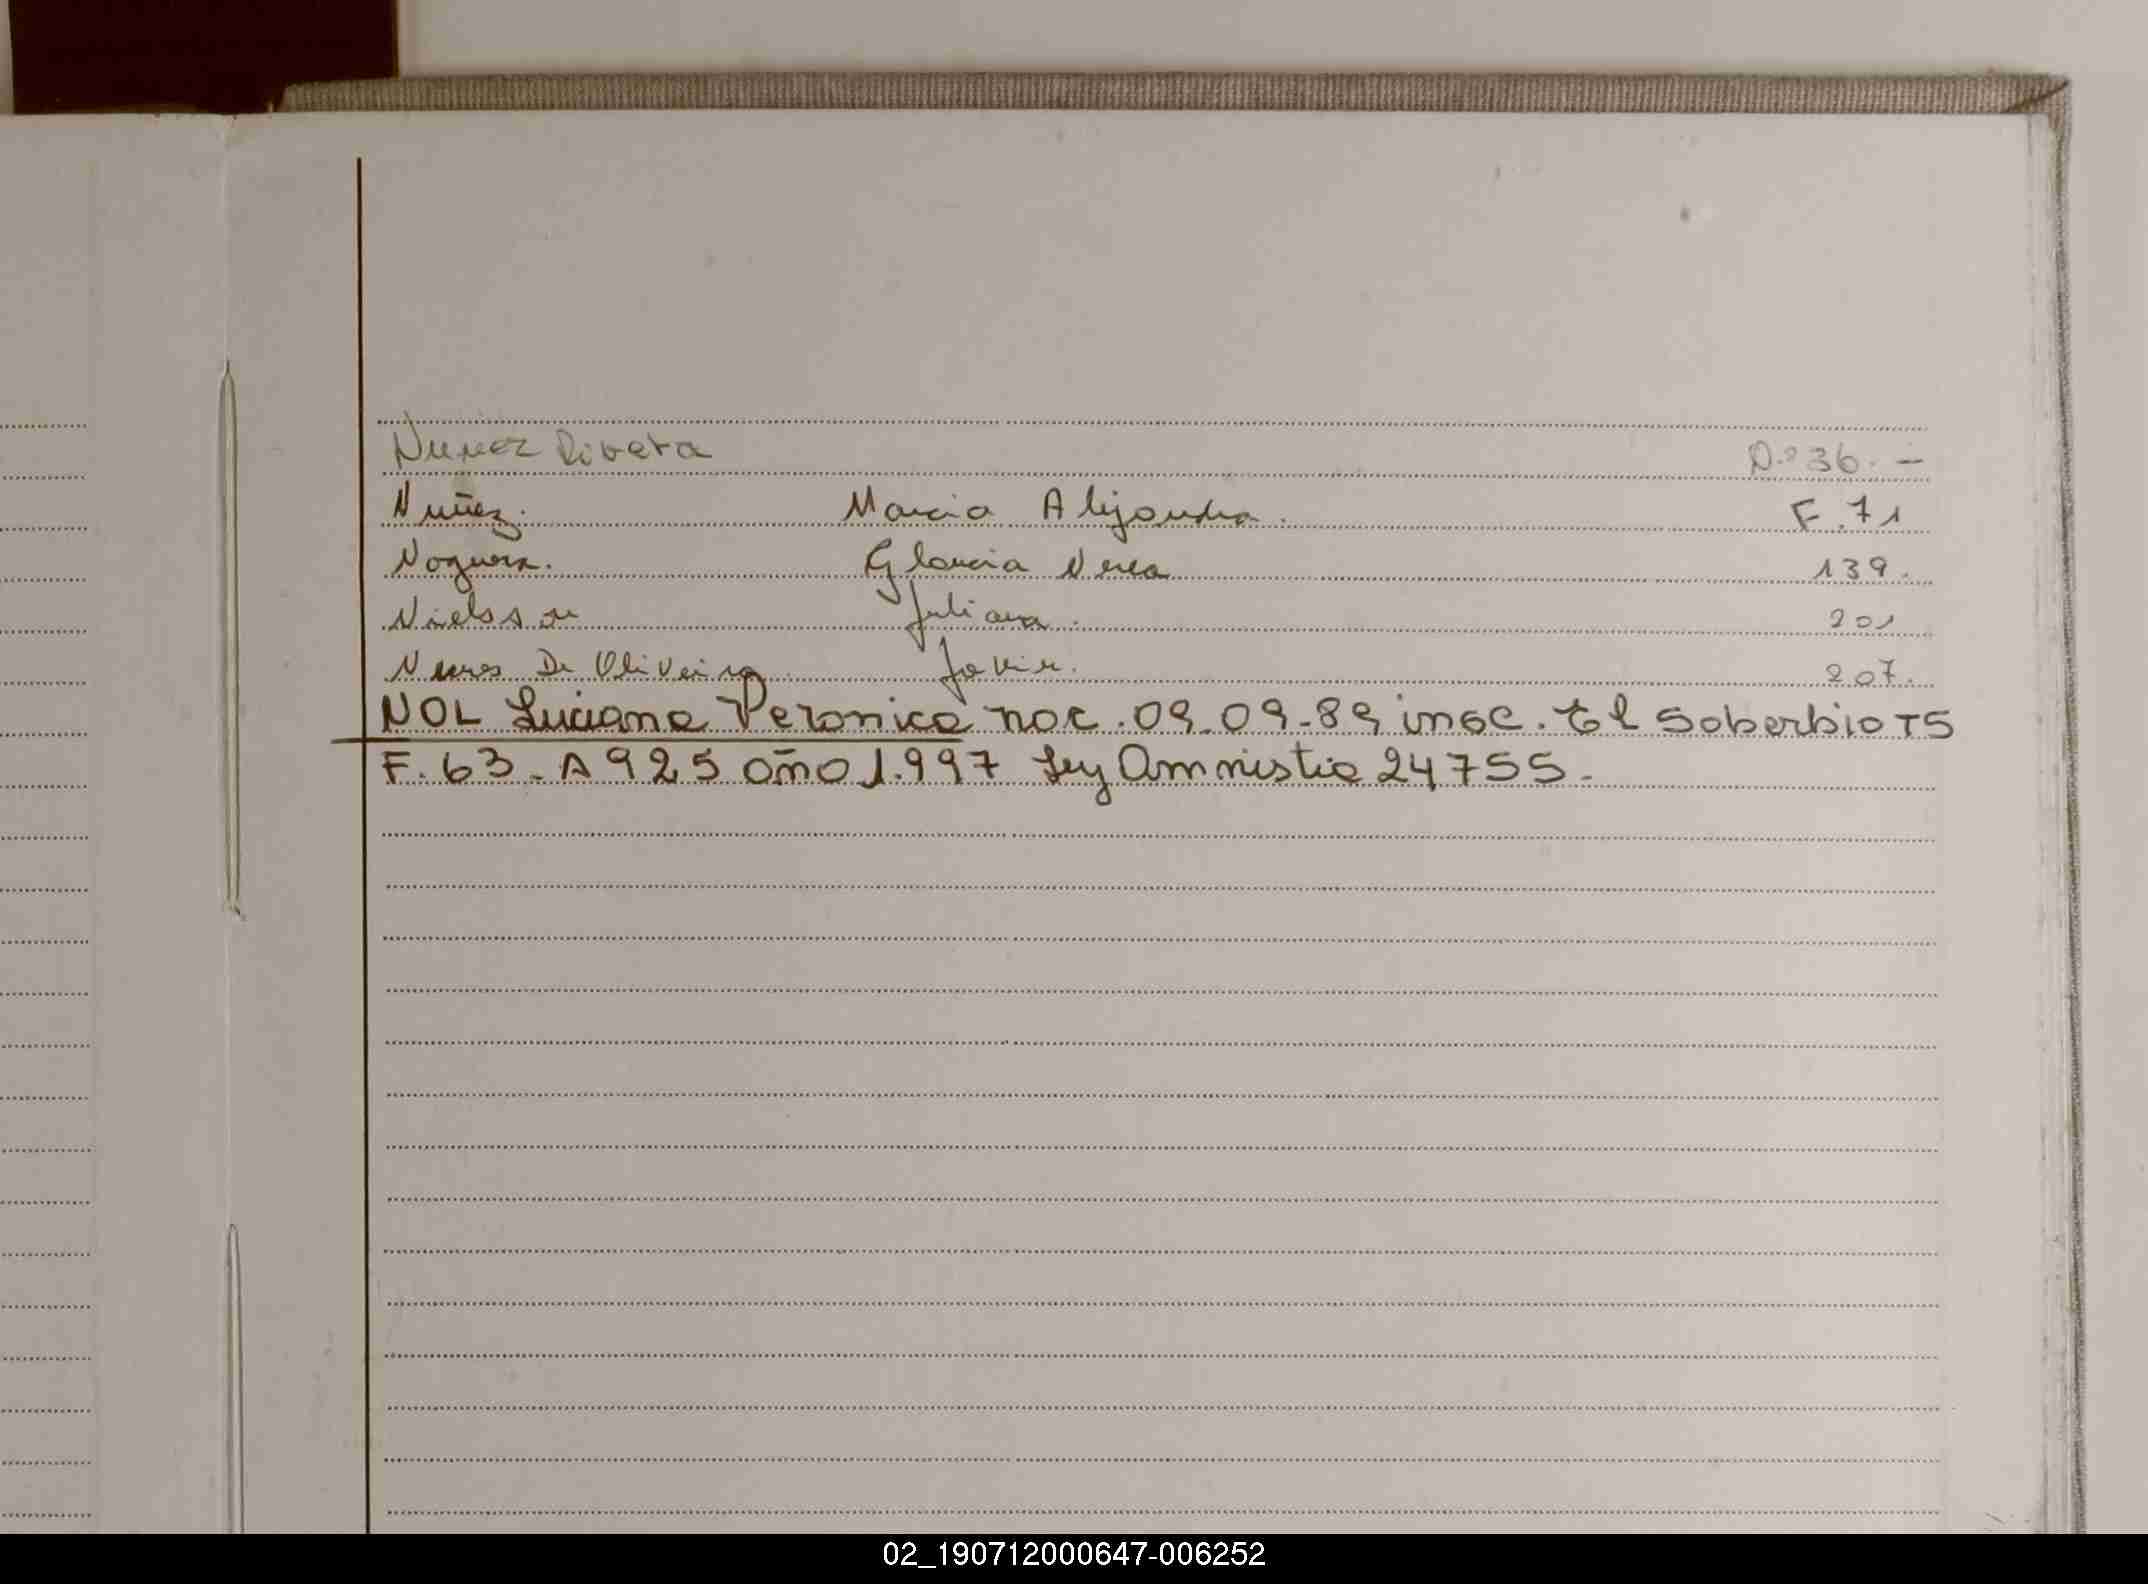 Nuñez Rivera D.º 36.-
Nuñez. Marcia Alejandra. F.71
Noguera. Glaucia Nerea 139.
Nielsson Juliana. 201
Nunes De Oliveira Javier. 207.
NOL Luciana Veronica nac. 09-09-89 insc. El Soberbio T5
F. 63 - A 925 año 1.997 Ley Amnistia 24755.
02_190712000647-006252